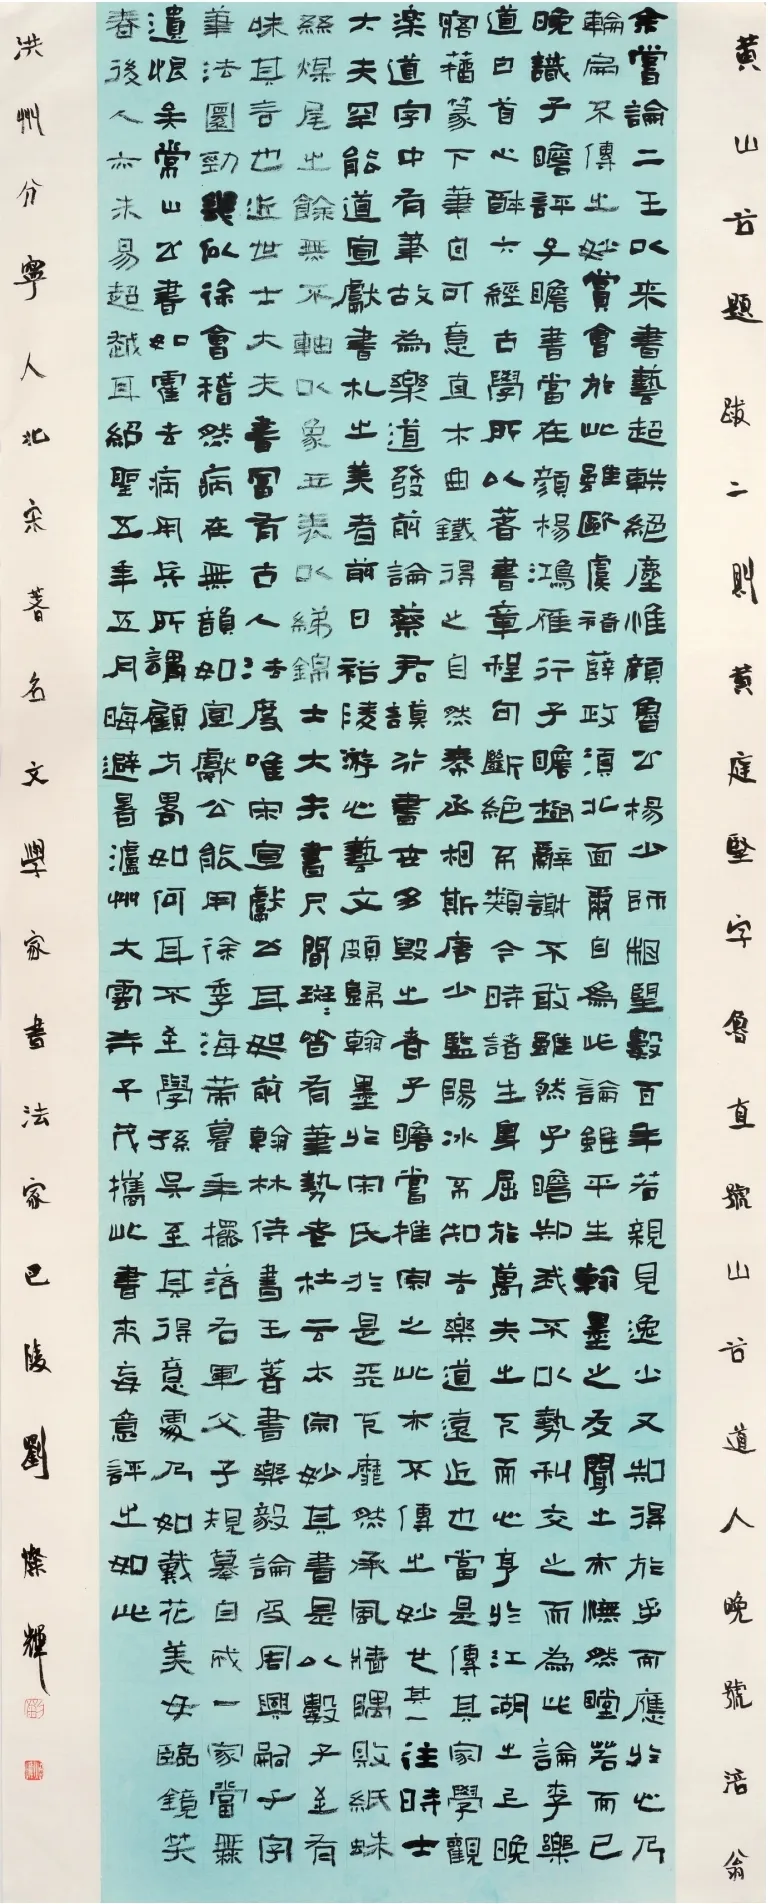 黄山谷題跋二則黄庭堅字魯直號山谷道人晚號涪翁
余嘗論二王以來書藝超軼絕塵惟顔魯公楊少師相望數百年若親見逸少又知得於手而應於心乃
輪扁不傳之妙賞會於此雖歐虞褚薛政須北面爾自爲此論雖平生翰墨之友聞之亦憮然瞠若而已
晚識子瞻評子瞻書當在顔楊鴻雁行子瞻極辭謝不敢雖然子瞻知我不以勢利交之而為此論李樂
道白首心醉六經古學所以著書章程句斷絕不類今時諸生身屈於萬夫之下而心亨於江湖之上晚
寤籀篆下筆自可意直木曲鐵得之自然秦丞相斯唐少監陽冰不知去樂道遠近也當是傳其家學觀
楽道字中有筆故為樂道發前論蔡君謨行書世多毀之者子瞻嘗推宗之此亦不傳之妙世其一往時士
大夫罕能道宣獻書札之美者前日裕陵游心藝文頗歸翰墨於宋氏於是天下靡然承風牆隅敗紙蛛
絲煤尾之餘無不軸以象玉表以綈錦士大夫書尺間斑斑皆有筆勢老杜云太宗妙其書是以數子並有
味其言也近世士大夫書冨有古人法度唯宋宣獻公耳如前翰林侍書王著書樂毅論及周興嗣千字
筆法圜勁幾似徐會稽然病在無韻如宣獻公能用徐季海策暮年擺落右軍父子規摹自成一家當無
遺恨矣常山公書如霍去病用兵所謂顧方畧如何耳不至學孫吳至其得意處乃如戴花美女臨鏡笑
春後人亦未易超越耳紹聖五年五月晦避暑瀘州大雲寺子茂攜此書來每意評之如此
洪州分寧人北宋著名文學家書法家巴陵劉燦輝